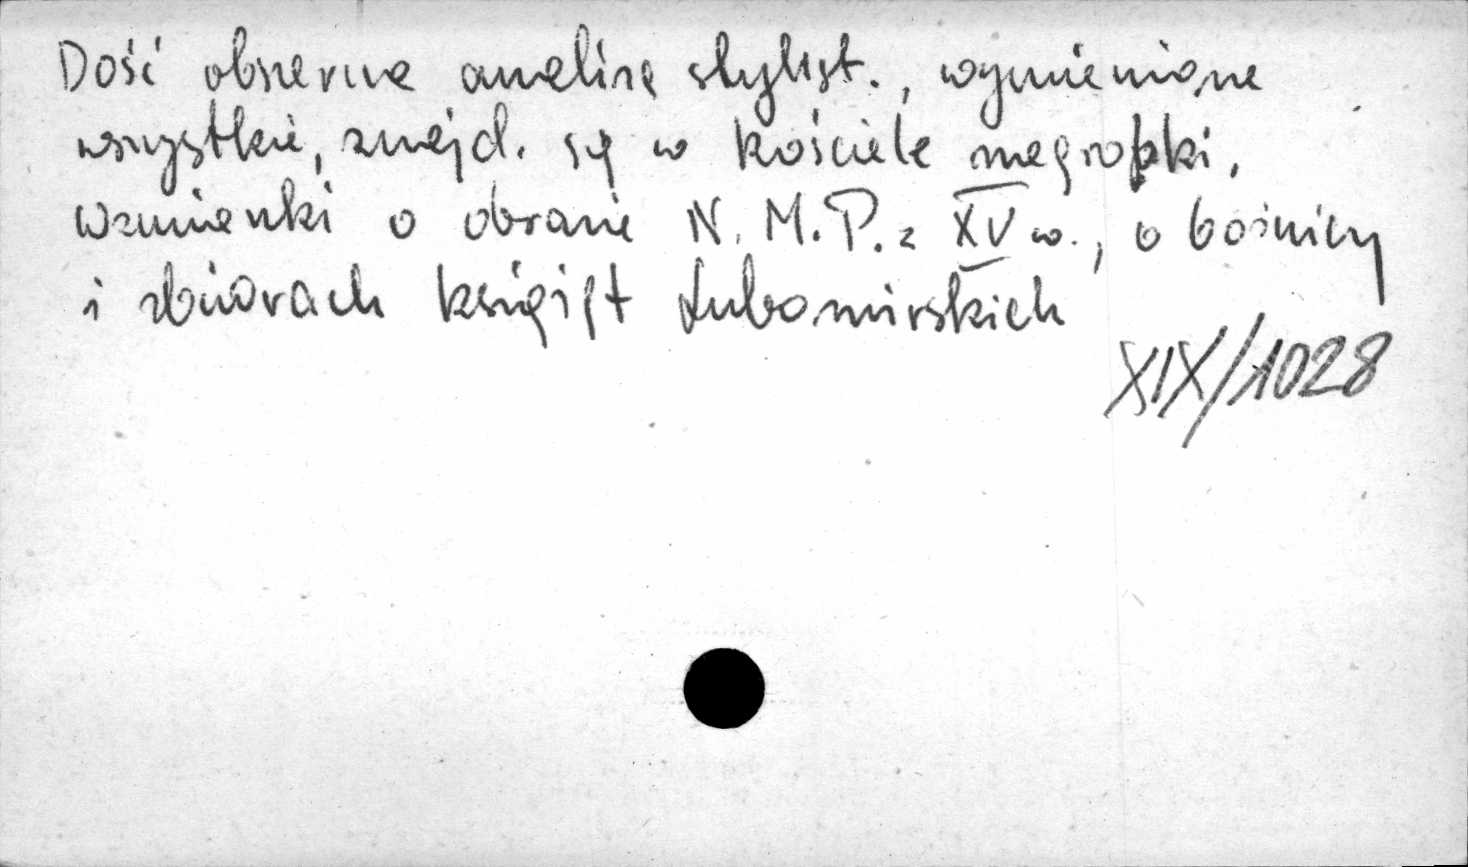 Dość obszerna analizę stylist., wymienione
wszystkie, znajd. się w kościele nagrobki,
wzmianki o obrazie N.M.P. z XV w., o bożnicy
i zbiorach książąt Lubomirskich
XIX/1028